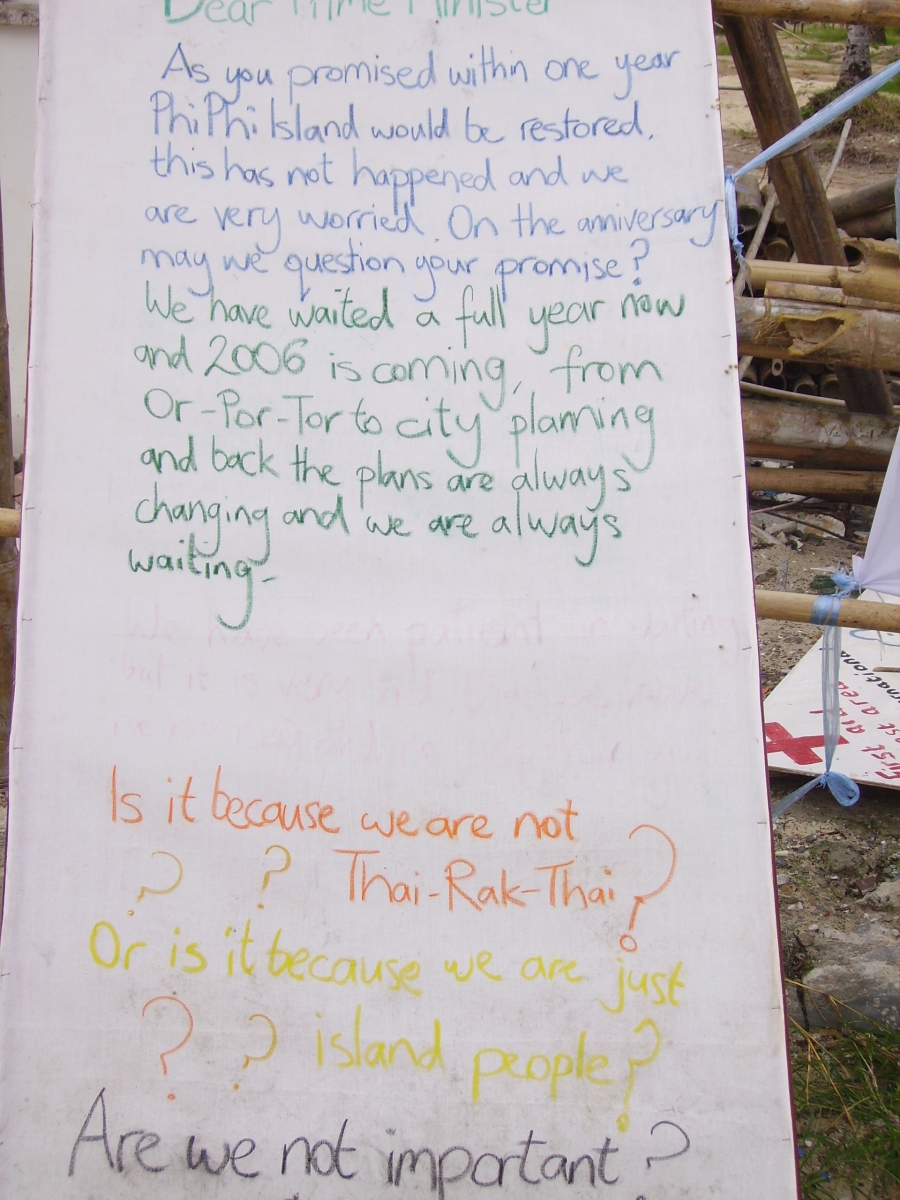 Dear Prime Minister
As you promised within one year
Phi Phi Island would be restored,
this has not happened and we
are very worried. On the anniversary
may we question your promise?
We have waited a full year now
and 2006 is coming, from
Or-Por-Tor to city planning
and back the plans are always
changing and we are always
waiting-
Is it because we are not
? ? Thai-Rak-Thai?
Or is it because we are just
? ? island people?
Are we not important?
First aid